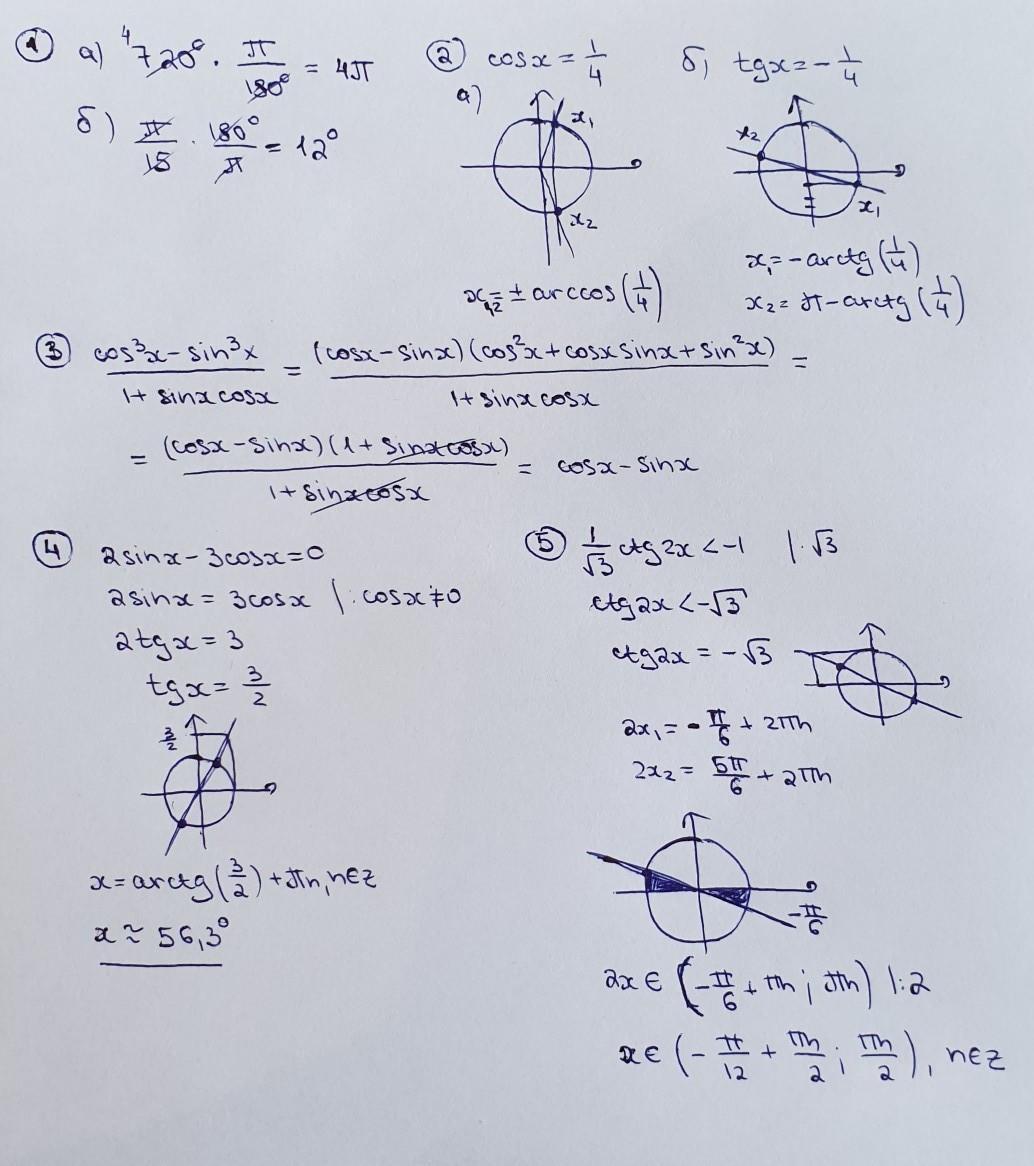 ① а) ⁴720° · π/180° = 4π
б) π/15 · 180°/π = 12°
② cosx = 1/4
а)
x₁
x₂
x₁,₂ = ± arccos(1/4)
б) tgx = -1/4
x₂
x₁
x₁ = -arctg(1/4)
x₂ = π - arctg(1/4)
③ (cos³x - sin³x)/(1 + sinx cosx) = (cosx - sinx)(cos²x + cosx sinx + sin²x)/(1 + sinx cosx) =
= (cosx - sinx)(1 + sinxcosx)/(1 + sinxcosx) = cosx - sinx
④ 2sinx - 3cosx = 0
2sinx = 3cosx |: cosx ≠ 0
2tgx = 3
tgx = 3/2
3/2
x = arctg(3/2) + πn, n∈Z
x ≈ 56,3°
⑤ 1/√3 ctg2x < -1 |·√3
ctg2x < -√3
ctg2x = -√3
2x₁ = -π/6 + 2πn
2x₂ = 5π/6 + 2πn
-π/6
2x ∈ (-π/6 + πn ; πn) |:2
x ∈ (-π/12 + πn/2 ; πn/2), n∈Z